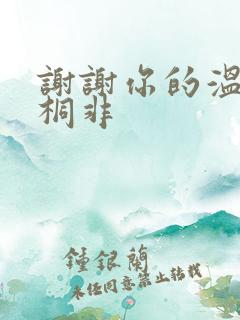 謝謝你的溫
桐非
鍾銀蘭
未经同意禁止转载